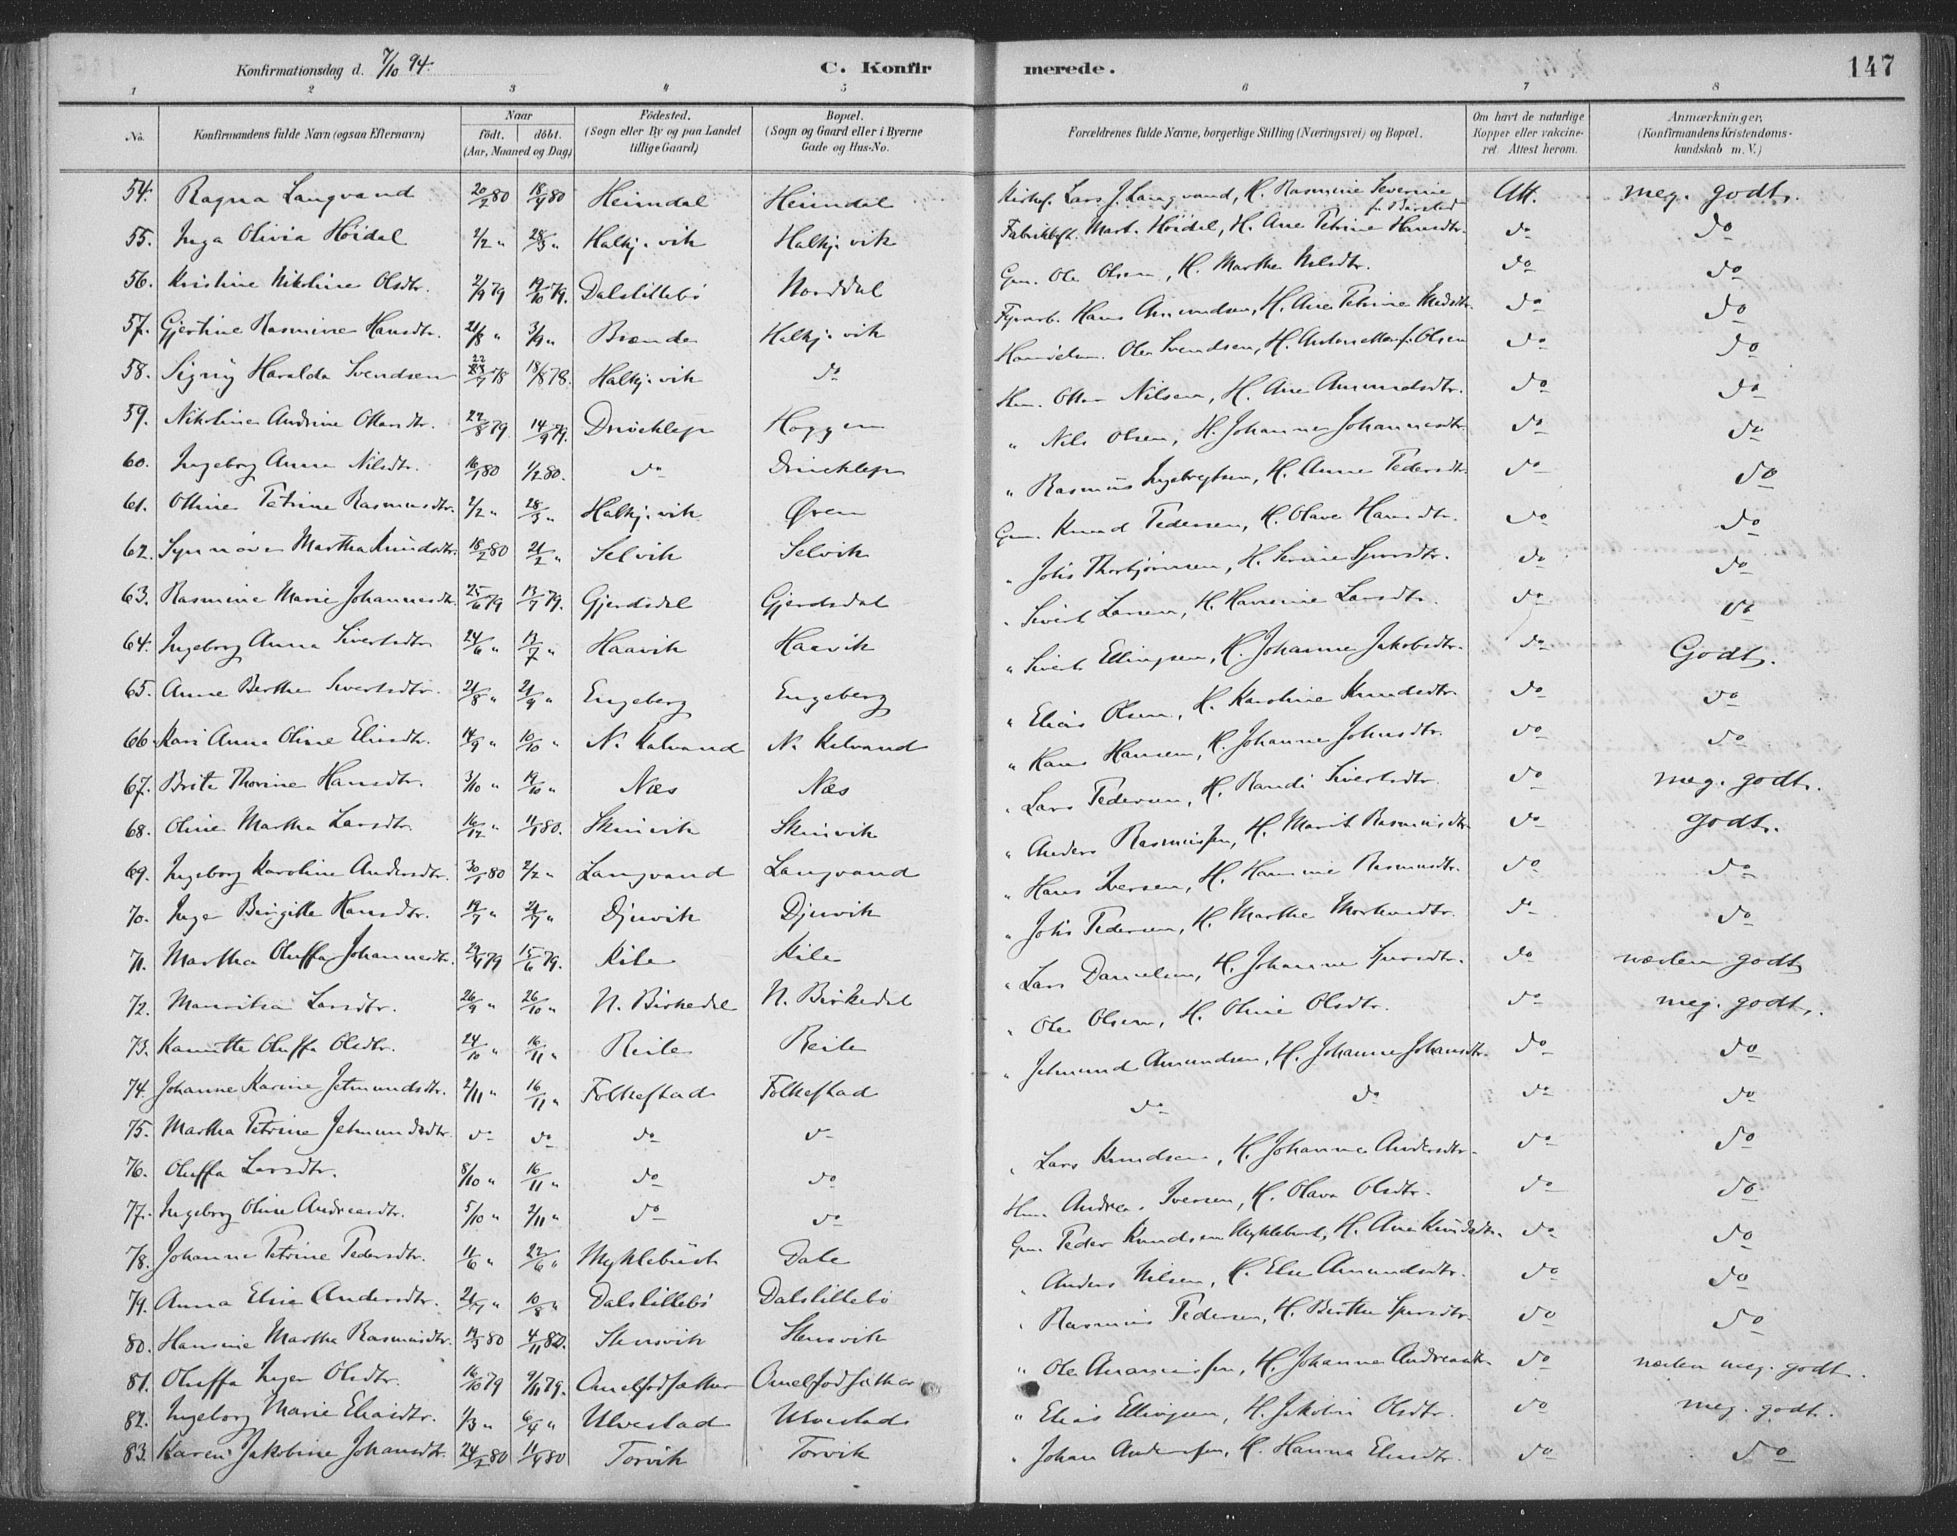 Konfirmationsdag d. 7/10 94. C. Konfirmerede. 147
1 2 3 4 5 6 7 8
No. Konfirmandens fulde Navn (ogsaa Efternavn) Naar født. døbt. (Aar, Maaned og Dag) Fødested. (Sogn eller By og paa Landet tillige Gaard) Bopæl. (Sogn og Gaard eller i Byerne Gade og Hus-No. Forældrenes fulde Navne, borgerlige Stilling (Næringsvei) og Bopæl. Om havt de naturlige Kopper eller vakcineret. Attest herom. Anmærkninger, (Konfirmandens Kristendomskundskab m. V.)
54. Ragna Langvand 20/2 80 18/4 80 Heimdal Heimdal Lars J. Langvand, H. Rasmine Severine Att. meg. godt.
55. Inga Olivia Höidal 2/2 " 28/3 " Halkjevik Halkjevik Mart. Höidal, H. Ane Petrine Hansdtr. do do
56. Kristine Nikoline Olsdtr. 2/9 79 19/10 79. Dalslillebö Norddal Gm. Ole Olsen, H. Marthe Nilsdtr. do do
57. Gjertine Rasmine Hansdtr. 21/8 " 3/9 " Brande Halkjevik Hans Amundsen, H. Ane Petrine do do
58. Signy Haralda Svendsen 22/7 78 18/8 78. Halkjevik do Ole Svendsen, H. Olsen do do
59. Nikoline Andrine Ottarsdtr. 22/8 79 14/9 79. Driveklep Haggen Hm. Otter Nilsen, H. Ane Amundsdtr. do do
60. Ingeborg Anna Nilsdtr. 16/1 80 1/2 80. do Driveklep " Nils Olsen, H. Johanne Johannesdtr. do do
61. Oline Petrine Rasmusdtr. 2/2 " 28/3 " Halkjevik Øren " Rasmus Ingebrigtsen, H. Anne Pedersdtr. do do
62. Synnöve Martha Knudsdtr. 18/2 80 21/2 " Selvik Selvik Gm. Knud Pedersen, H. Olave Hansdtr. do do
63. Rasmine Marie Johannesdtr. 25/6 79 13/7 79. Gjerdsdal Gjerdsdal " Johs Thorbjörnsen, H. Serine Sjursdtr. do do
64. Ingeborg Anna Sivertsdtr. 24/6 " 13/7 " Haavik Haavik " Sivert Larsen, H. Hansine Larsdtr. do do
65. Anne Berthe Sivertsdtr. 21/8 " 21/9 " Engeberg Engeberg " Sivert Ellingsen, H. Johanne Jakobsdtr. do Godt.
66. Kari Anna Oline Eliasdtr. 14/9 " 10/10 " N. Kalvand N. Kalvand " Elias Olsen, H. Karoline Knudsdtr. do do
67. Brite Thorine Hansdtr. 3/10 " 19/10 " Næs Næs " Hans Hansen, H. Johanne Johnsdtr. do do
68. Oline Martha Larsdtr. 16/12 " 11/1 80. Skinvik Skinvik " Lars Pedersen, H. Randi Sivertsdtr. do meg. godt.
69. Ingeborg Karoline Andersdtr. 30/1 80 2/2 " Langvand Langvand " Anders Rasmussen, H. Marit Rasmusdtr. do godt.
70. Inger Birgitte Hansdtr. 19/7 " 21/7 " Djuvik Djuvik " Hans Iversen, H. Hansine Rasmusdtr. do do
71. Martha Oluffa Johannesdtr. 29/4 79 15/6 79. Kile Kile " Johs Pedersen, H. Marthe do do
72. Mauritsa Larsdtr. 26/9 " 26/10 " N. Birkedal N. Birkedal " Lars Danielsen, H. Johanne Sjursdtr. do næsten godt
73. Kanutte Oluffa Olsdtr. 24/10 " 16/11 " Reite Reite " Ole Olsen, H. Oline Olsdtr. do meg. godt.
74. Johanne Karine Jetmundsdtr. 2/11 " 16/11 " Folkestad Folkestad " Jetmund Amundsen, H. Johanne Johansdtr. do do
75. Martha Petrine Jetmundsdtr. do do do do do do do do
76. Oluffa Larsdtr. 8/10 " 16/11 " do do " Lars Knudsen, H. Johanne Andersdtr. do do
77. Ingeborg Oline Andreasdtr. 5/10 " 2/11 " do do Hm. Andreas Iversen, H. Olava Olsdtr. do do
78. Johanne Petrine Pedersdtr. 11/6 " 22/6 " Myklebust Dale Gm. Peder Knudsen Myklebust, H. Ane Knudsdtr. do do
79. Anna Elise Andersdtr. 21/7 " 10/8 " Dalslillebö Dalslillebö " Anders Nilsen, H. Else Amundsdtr. do do
80. Hansine Martha Rasmusdtr. 19/3 80 4/11 80. Stensvik Stensvik " Rasmus Pedersen, H. Berthe Sjursdtr. do do
81. Oluffa Inger Olsdtr. 16/10 79 9/11 79. Amelfodsætter Amelfodsætter " Ole H. Johanne Andreasdtr. do næsten meg. godt.
82. Ingeborg Marie Eliasdtr. 1/3 " 6/4 " Ulvestad Ulvestad " Elias Ellingsen, H. Jakobine Olsdtr. do meg. godt.
83. Karen Jakobine Johansdtr. 24/2 80 11/4 80 Torvik Torvik " Johan Andersen, H. Hanna Eliasdtr. do do